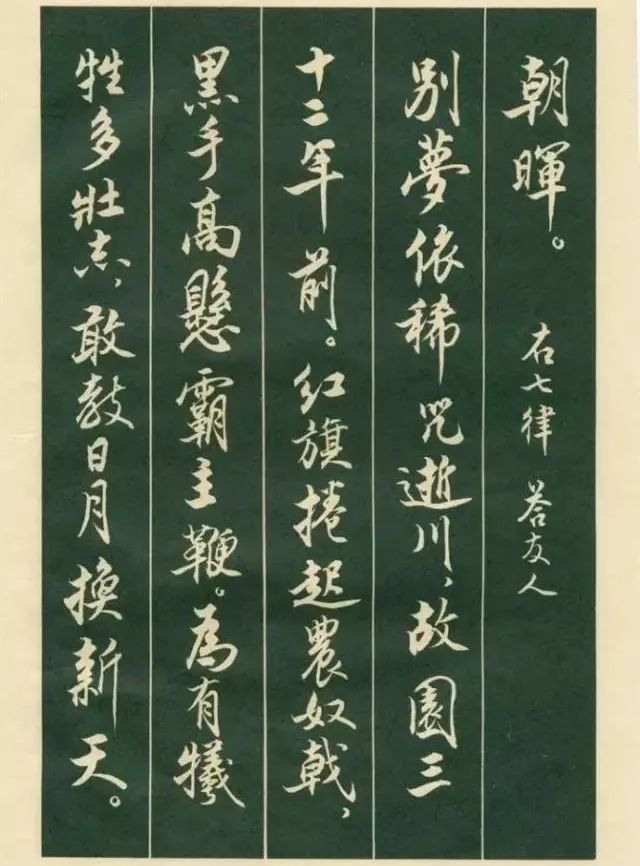 朝暉。 右七律 荅友人
別夢依稀咒逝川、故園三
十二年前。红旗捲起農奴戟、
黑手高懸霸主鞭。為有犧
牲多壯志、敢教日月換新天。